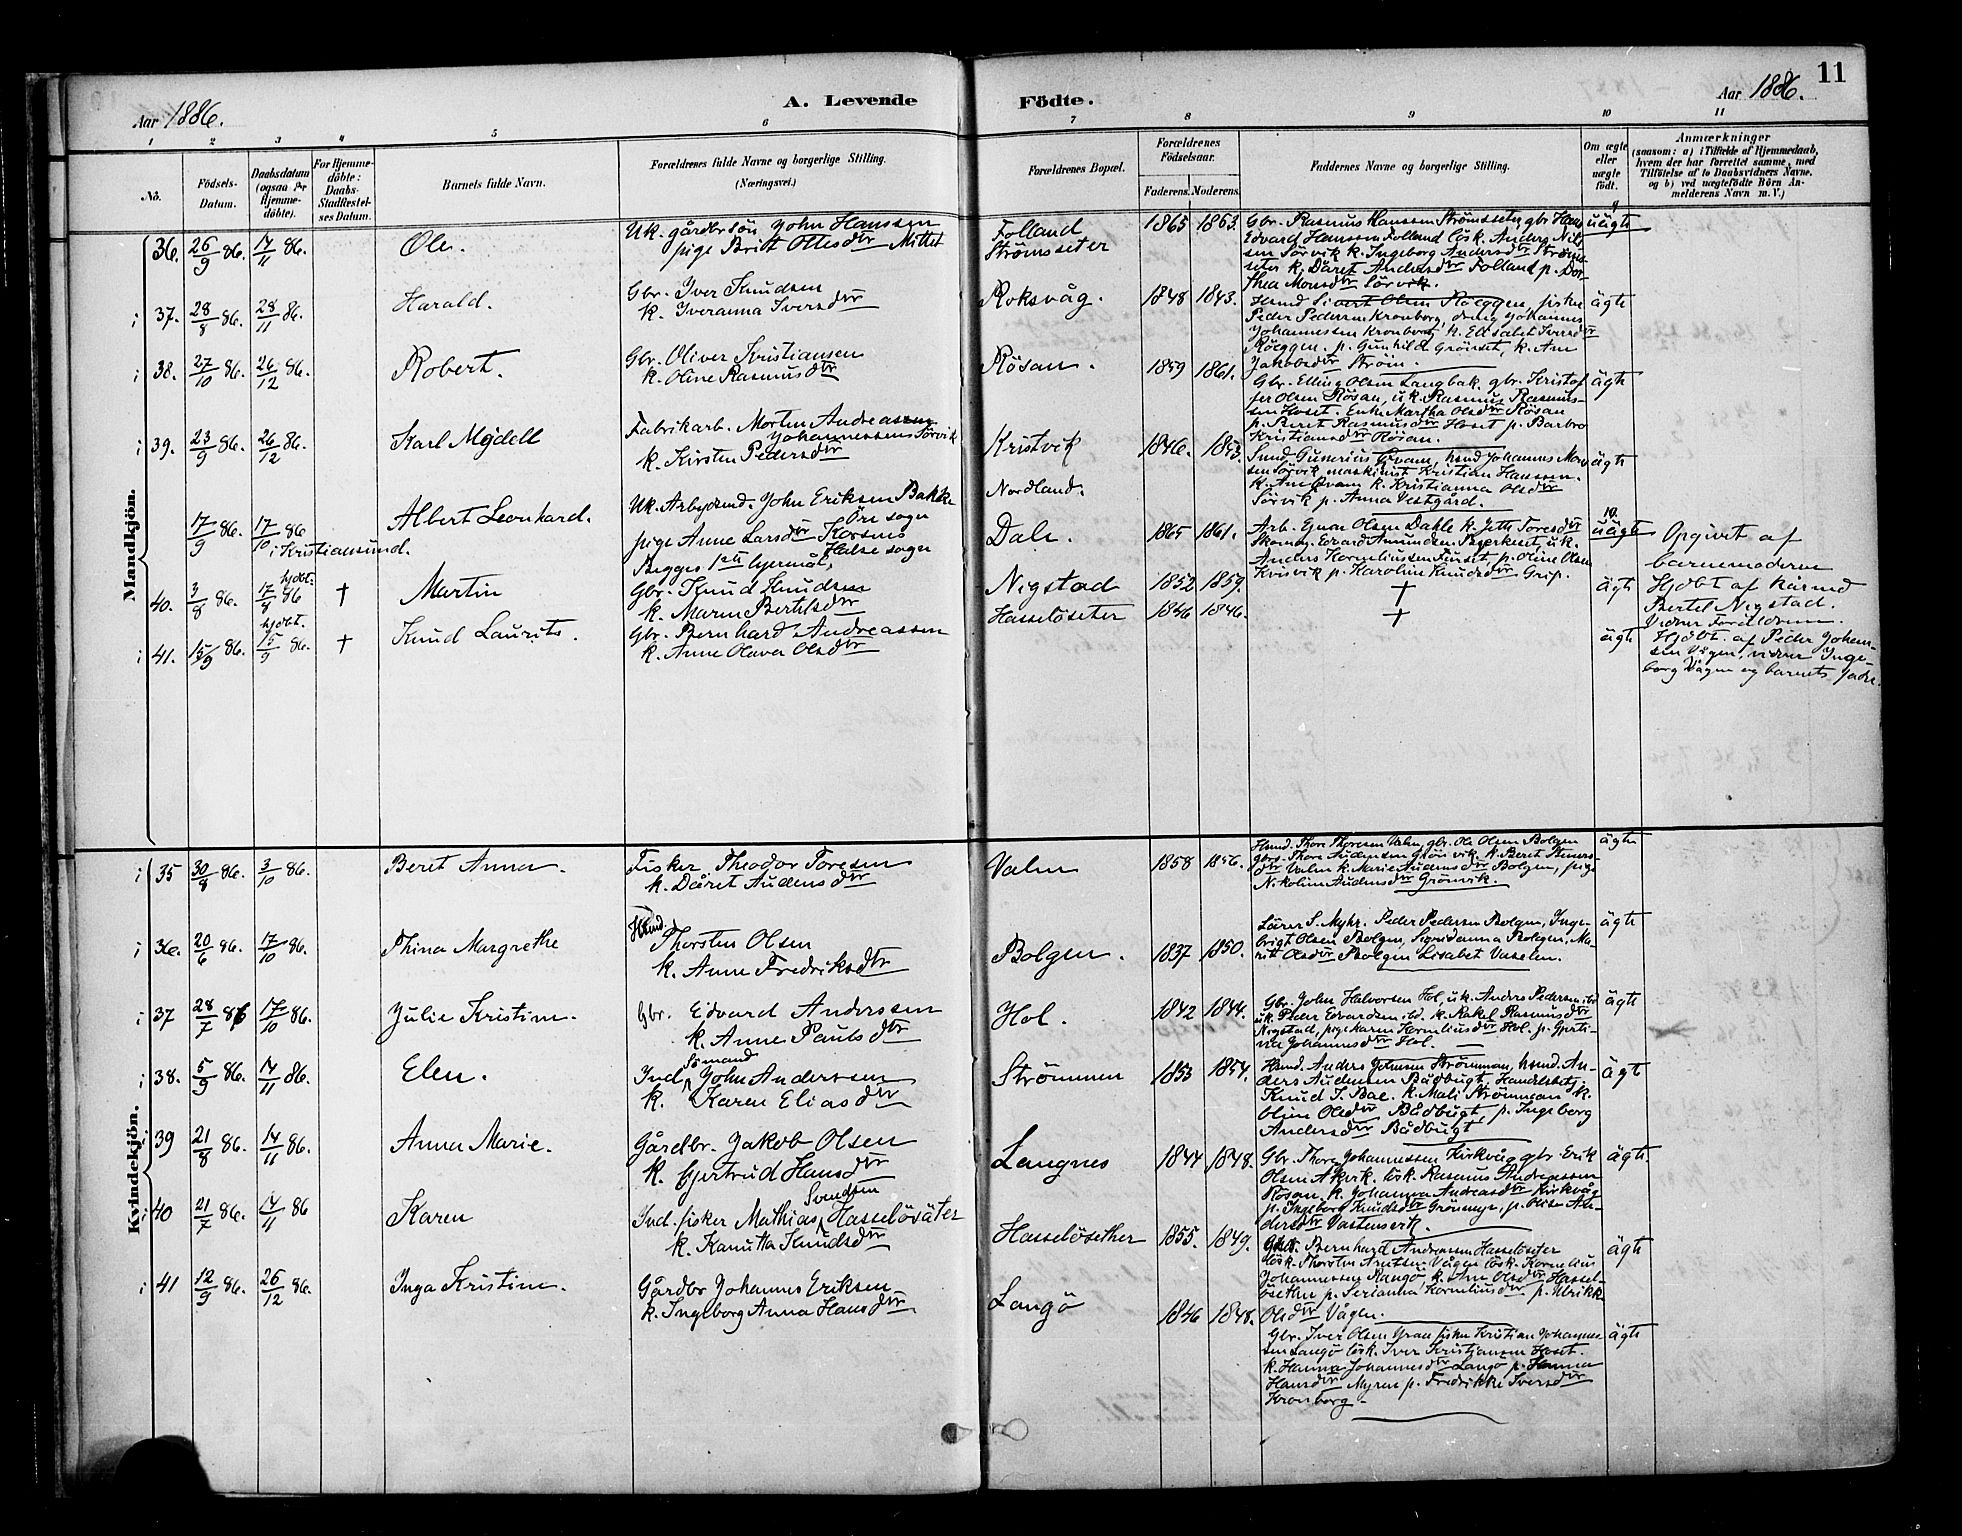 11
Aar 1886.
A. Levende
Födte.
Aar 1886.
1 2 3 4 5 6 7 8 9 10 11
No.
Födsels-
Datum.
Daabsdatum
(ogsaa for
Hjemme-
döbte).
For Hjemme-
döbte:
Daabs-
Stadfæstel-
ses Datum.
Barnets fulde Navn.
Forældrenes fulde Navne og borgerlige Stilling.
(Næringsvei.)
Forældrenes Bopæl.
Forældrenes
Födselsaar.
Faderens. Moderens.
Faddernes Navne og borgerlige Stilling.
Om ægte
eller
uægte
födt.
Anmærkninger
(saasom: a) i Tilfælde af Hjemmedaab,
hvem der har forrettet samme, med
Tilföielse af to Daabsvidners Navne.
og b) ved uægtefödte Börn An-
melderens Navn m. V.)
Mandkjön.
36. 26/9 86. 14/11 86.
Ole.
Uk. gårdbrsön John Hanssen
pige Britt Ottesdtr Mittet
Folland
Strömsseter
1865 1863.
Gbr. Rasmus Hanssen Strömsseter, gbr Hans
Edvard Hanssen Folland lösk. Anders Nils
sen Sörvik k. Ingeborg Andersdtr Ströms-
seter k. Däret Andersdtr Folland p. Dor-
thea Monsdtr Sörvik.
uägte
i 37. 28/8 86. 28/11 86.
Harald.
Gbr. Iver Knudsen
k. Iveranna Iversdtr
Roksvåg.
1848 1843.
Husmd Sivert Olsen Röeggen, fisker
Peder Pedersen Kronborg, dreng Johannes
Johannessen Kronborg, k. Elisabet Iversdtr
Röeggen. p. Gunhild Grönset, k. Ane
Jakobsdtr Ström.
ägte
i 38. 27/10 86. 26/12 86.
Robert.
Gbr. Oliver Kristiansen
k. Oline Rasmusdtr
Rösan.
1859 1861.
Gbr. Elling Olsen Langbak. gbr. Kristof
fer Olsen Rösan, uk. Rasmus Rasmus-
sen Hoset. Enke Martha Olsdtr Rösan
p. Beret Rasmusdtr Hoset p. Barbro
Kristiansdtr Rösan.
ägte
i 39. 23/9 86. 26/12 86.
Karl Mejdell
Fabrikarb. Morten Andreassen
Johannessens Sörvik
k. Kirsten Pedersdtr
Kristvik
Nordland.
1846. 1853.
k. Ane Kvam k. Kristianna Olsdtr
Sörvik p. Anna Vestgård.
ägte
17/9 86. 17/10 86
i Kristiansund.
Albert Leonhard.
Uk. Arbejdsmd. John Eriksen Bakke
Öre sogn
pige Anne Larsdtr Korsnes
Halse sogn
Begges 1ste lejermål,
Dale.
1865 1861.
Arb. Ejnar Olsen Dahle k. Jette Toresdtr
Skomm. Edvard Amundsen Bjerkeset uk.
Anders Korneliussen Fuset, p. Oline Olsen
Krisvik p. Karoline Knudsdtr Grip.
uägte
Opgivet af
barnemoderen
40. 3/8 86. hjdbt. 17/8 86 †
Martin
Gbr. Knud Knudsen
k. Maren Bertelsdtr
Nigstad
1852 1859.
†
ägte
Hjdbt af kårmd
Bertel Nigstad.
Vidner Foräldrene.
i 41. 15/9 86. hjdbt. 15/9 86. †
Knud Laurits.
Gbr. Bernhard Andreassen
k. Anne Olava Olsdtr
Hasselöseter
1846 1846.
†
ägte
Hjdbt. af Peder Johan-
sen Vågen, vidner Inge-
borg Vågen og barnets fader.
Kvindekjön.
i 35 30/8 86. 3/10 86.
Beret Anna.
Fisker Theodor Toresen
k. Dåret Audensdtr
Valen
1858 1856.
Husmd. Thore Thoresen Valen, gbr. Ole Olsen Bolgen
gbrs. Thore Audensen Grönvik. k. Beret Steners-
dtr Valen k. Marie Audensdtr Bolgen, pige
Nikoline Audensdtr Grönvik.
ägte
i 36. 20/6 86. 17/10 86.
Thina Margrethe
Husmd. Thorsten Olsen
k. Anne Fredriksdtr
Bolgen.
1837 1850.
Lärer S. Myhr. Peder Pedersen Bolgen, Inge-
brigt Olsen Bolgen, Sigridanna Bolgen, Ma-
rit Olsdtr Bolgen Lisabet Vasselen.
ägte
i 37 28/7 86 17/10 86.
Julie Kristine.
Gbr. Edvard Anderssen
k. Anne Paulsdtr
Hol.
1842 1844.
Gbr. John Halvorsen Hol, uk. Anders Pedersen ibd
uk. Peder Edvardsen ibd. k. Rakel Rasmusdtr
Nigstad, pige Karen Korneliusdtr Hol. p. Gjerti-
ne Johannesdtr Hol.
ägte
i 38. 5/9 86. 14/11 86.
Elen.
Sömand
Ind. John Anderssen
k. Karen Eliasdtr
Strömmen
1853 1854.
Husmd. Anders Johnsen Strömmen, husmd. An-
ders Audensen Bådbugt, Handelsbetj.
Knud I. Bae. k. Mali Strömmen k.
Oline Olsdtr Bådbugt, p. Ingeborg
Andersdtr Bådbugt
ägte
i 39 21/8 86. 14/11 86.
Anna Marie.
Gårdbr. Jakob Olsen
k. Gjertrud Hansdtr
Langnes
1844 1848.
Gbr. Thore Johannessen Kirkvåg gbr Erik
Olsen Akvik. lösk. Rasmus Andreassen
Rösan. k. Johanna Andreasdtr Kirkvåg
p. Ingeborg Knudsdtr Grönmyr, p. Olise An-
dersdtr
ägte.
i 40 21/7 86. 14/11 86
Karen
Svendsen
Ind. fisker Mathias Hasselösäter
k. Kanutta Knudsdtr
Hasselösether
1855. 1849.
Gbr. Bernhard Andreassen Hasselöseter
lösk. Thorsten Arntsen Vågen lösk. Kornelius
Johannessen Rangö, k. Ane Olsdtr Hassel-
ösether p. Serianna Korneliusdtr p. Ulrikke
Olsdtr Vågen.
ägte
i 41 12/9 86. 26/12 86.
Inga Kristine.
Gårdbr Johannes Eriksen
k. Ingeborg Anna Hansdtr
Langö
1846 1848.
Gbr. Iver Olsen fisker Kristian Johannes-
sen Langö lösk. Iver Kristiansen Hoset.
k. Hanna Johannesdtr Langö p. Hanna
Hansdtr Myren p. Fredrikke Iversdtr
Kronborg
ägte